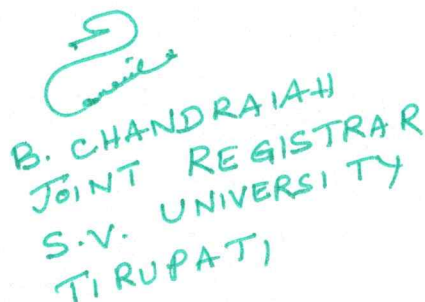 B. CHANDRAIAH
JOINT REGISTRAR
S.V. UNIVERSITY
TIRUPATI